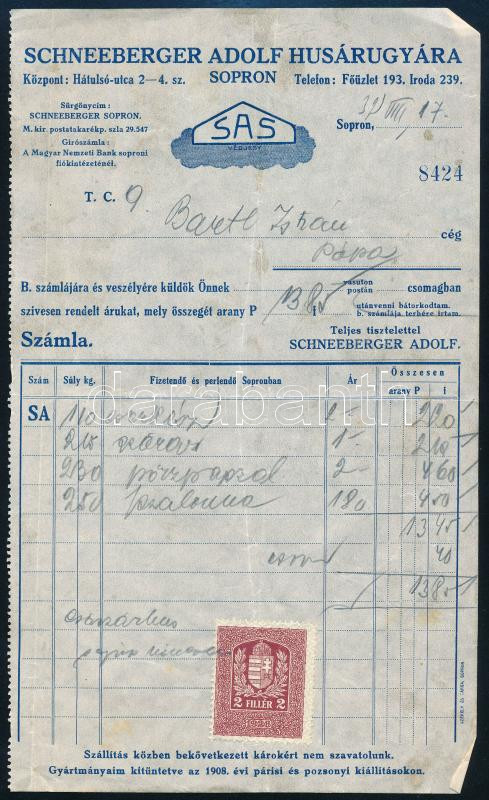 SCHNEEBERGER ADOLF HUSÁRUGYÁRA
Központ: Hátulsó-utca 2–4. sz. SOPRON Telefon: Főüzlet 193. Iroda 239.
Sürgönycim:
SCHNEEBERGER SOPRON.
M. kir. postatakarékp. szla 29.547
Girószámla:
A Magyar Nemzeti Bank soproni
fiókintézeténél.
SAS
VÉDJEGY
Sopron, 37 VIII 17.
8424
T. C. Bartl István cég
Pápa
B. számlájára és veszélyére küldök Önnek vasuton postán csomagban
szivesen rendelt árukat, mely összegét arany P 13.85 utánvenni bátorkodtam.
b. számlája terhére irtam.
Teljes tisztelettel
Számla. SCHNEEBERGER ADOLF.
Szám Súly kg. Fizetendő és perlendő Sopronban Ár Összesen
arany P f
SA 110 2- 220
210 1- 210
230 2- 460
250 szalonna 180 450
1345
40
1385
2 FILLÉR 2
Szállitás közben bekövetkezett károkért nem szavatolunk.
Gyártmányaim kitüntetve az 1908. évi párisi és pozsonyi kiállitásokon.
darabanth